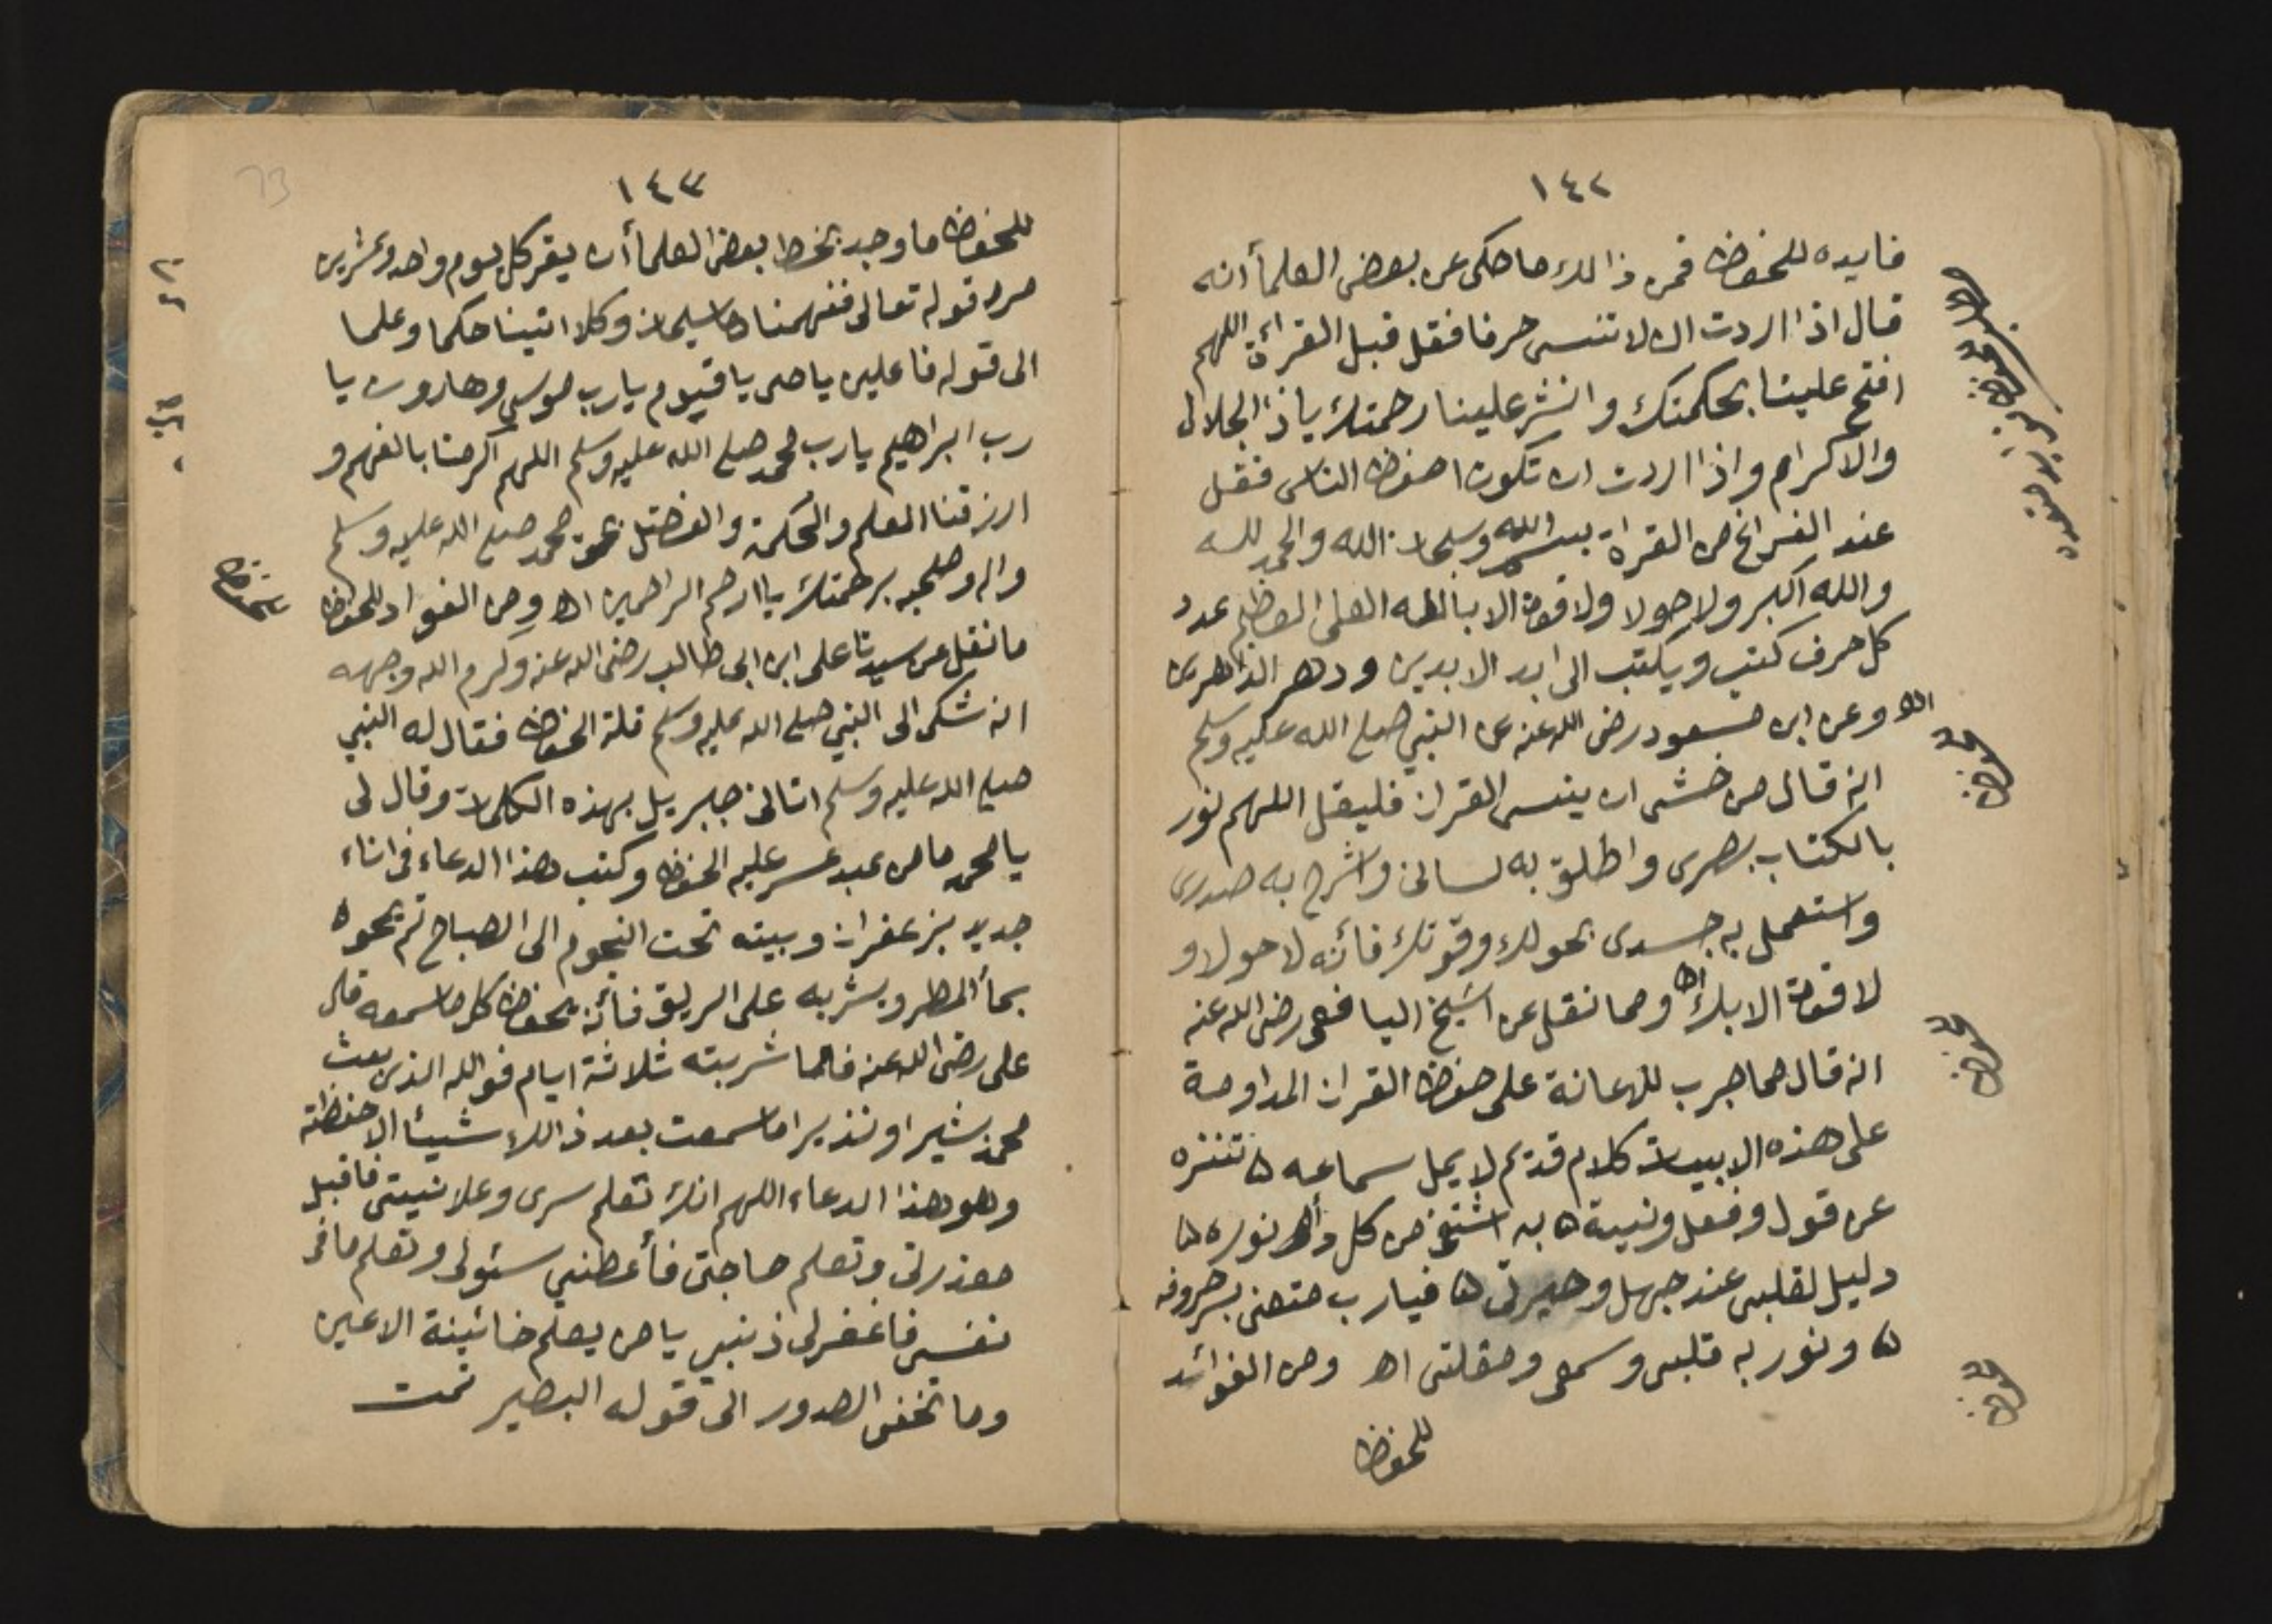 ١٤٢
فايده للحفظ فمن ذالك ما حكى عن بعض العلمأ انه
قال اذا اردت ان لا تنسى حرفا فقل قبل القرأة اللهم
افتح علينا بحكمتك وانشر علينا رحمتك ياذا الجلال
والاكرام واذا اردت ان تكون احفظ الناس فقل
عند الفراغ من القراة بسم الله وسبحان الله والحمد لله
والله اكبر ولا حولا ولا قوة الا بالله العلى العظيم عدد
كل حرف كتب ويكتب الى ابد الابدين ودهر الداهرين
اه وعن ابن مسعود رضى الله عنه عن النبي صلع الله عليه وسلم
انه قال من خشى ان ينسى القران فليقل اللهم نور
بالكتاب بصرى واطلق به لسانى واشرح به صدرى
واستعمل به جسدى بحولك وقوتك فأنه لا حولا و
لا قوة الا بك اه ومما نقل عن الشيخ اليافعى رضى الله عنه
انه قال مما جرب للاعانة على حفظ القران المداومة
على هذه الابيات كلام قديم لا يمل سماعه ه تنزه
عن قول وفعل ونيية ه به اشتفى من كل دأ نوره ه
دليل لقلبى عند جهل وحيرتى ه فيارب متعنى بسر حروفه
ه ونور به قلبى وسمعى ومقلتى اه ومن الفوائد
للحفظ
للحفظ
للحفظ
للحفظ
١٤٣
للحفظ ما وجد بخط بعض العلمأ ان يقر كل يوم واحد وعشرين
مره قوله تعالى ففهمناها سليمان وكلا اتينا حكما وعلما
الى قوله فاعلين ياحى ياقيوم يارب موسى وهارون يا
رب ابراهيم يارب محمد صلع الله عليه وسلم اللهم اكرمنا بالفهم و
ارزقنا العلم والحكمة والفضل بحق محمد صلع الله عليه وسلم
واله وصحبه برحمتك ياارحم الراحمين اه ومن الفواد للحفظ
ما نقل عن سيدنا على ابن ابى طالب رضى الله عنه وكرم الله وجهه
انه شكى الى النبي صلع الله عليه وسلم قلة الحفظ فقال له النبي
صلع الله عليه وسلم اتانى جبريل بهذه الكلمات وقال لى
يامحمد ما من عبد عسر عليه الحفظ وكتب هذا الدعاء فى اناء
جديد بزعفران وبيته تحت النجوم الى الصباح ثم يمحوه
بمأ المطر ويشربه على الريق فأنه يحفظ كل ما سمعه قال
على رضى الله عنه فالما شربته ثلاثة ايام فوالله الذى بعث
محمد بشيرا ونذيرا ما سمعت بعد ذالك شيئا الا حفظته
وهو هذا الدعاء اللهم انك تعلم سرى وعلانييتى فاقبل
معذرتى وتعلم حاجتى فأعطنيي سئولى وتعلم ما فى
نفسى فاغفرلى ذنبيي يامن يعلم خائينة الاعين
وما تخفى الصدور الى قوله البصير تمت
للحفظ